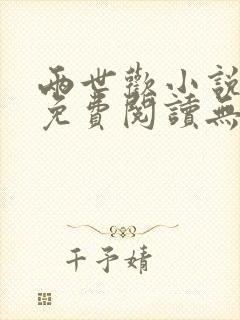 兩世歡小說
免費閱讀無
千予婧